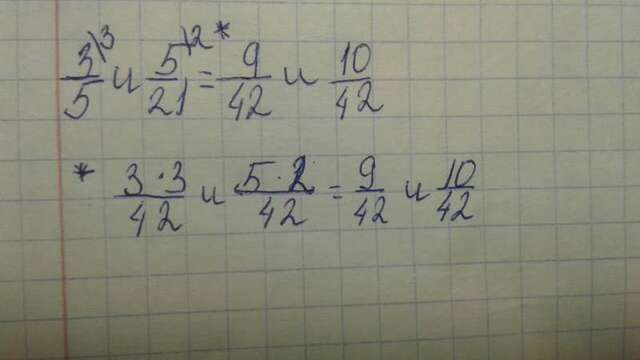 3\3/5 и 5\2/21 =* 9/42 и 10/42
* 3·3/42 и 5·2/42 = 9/42 и 10/42